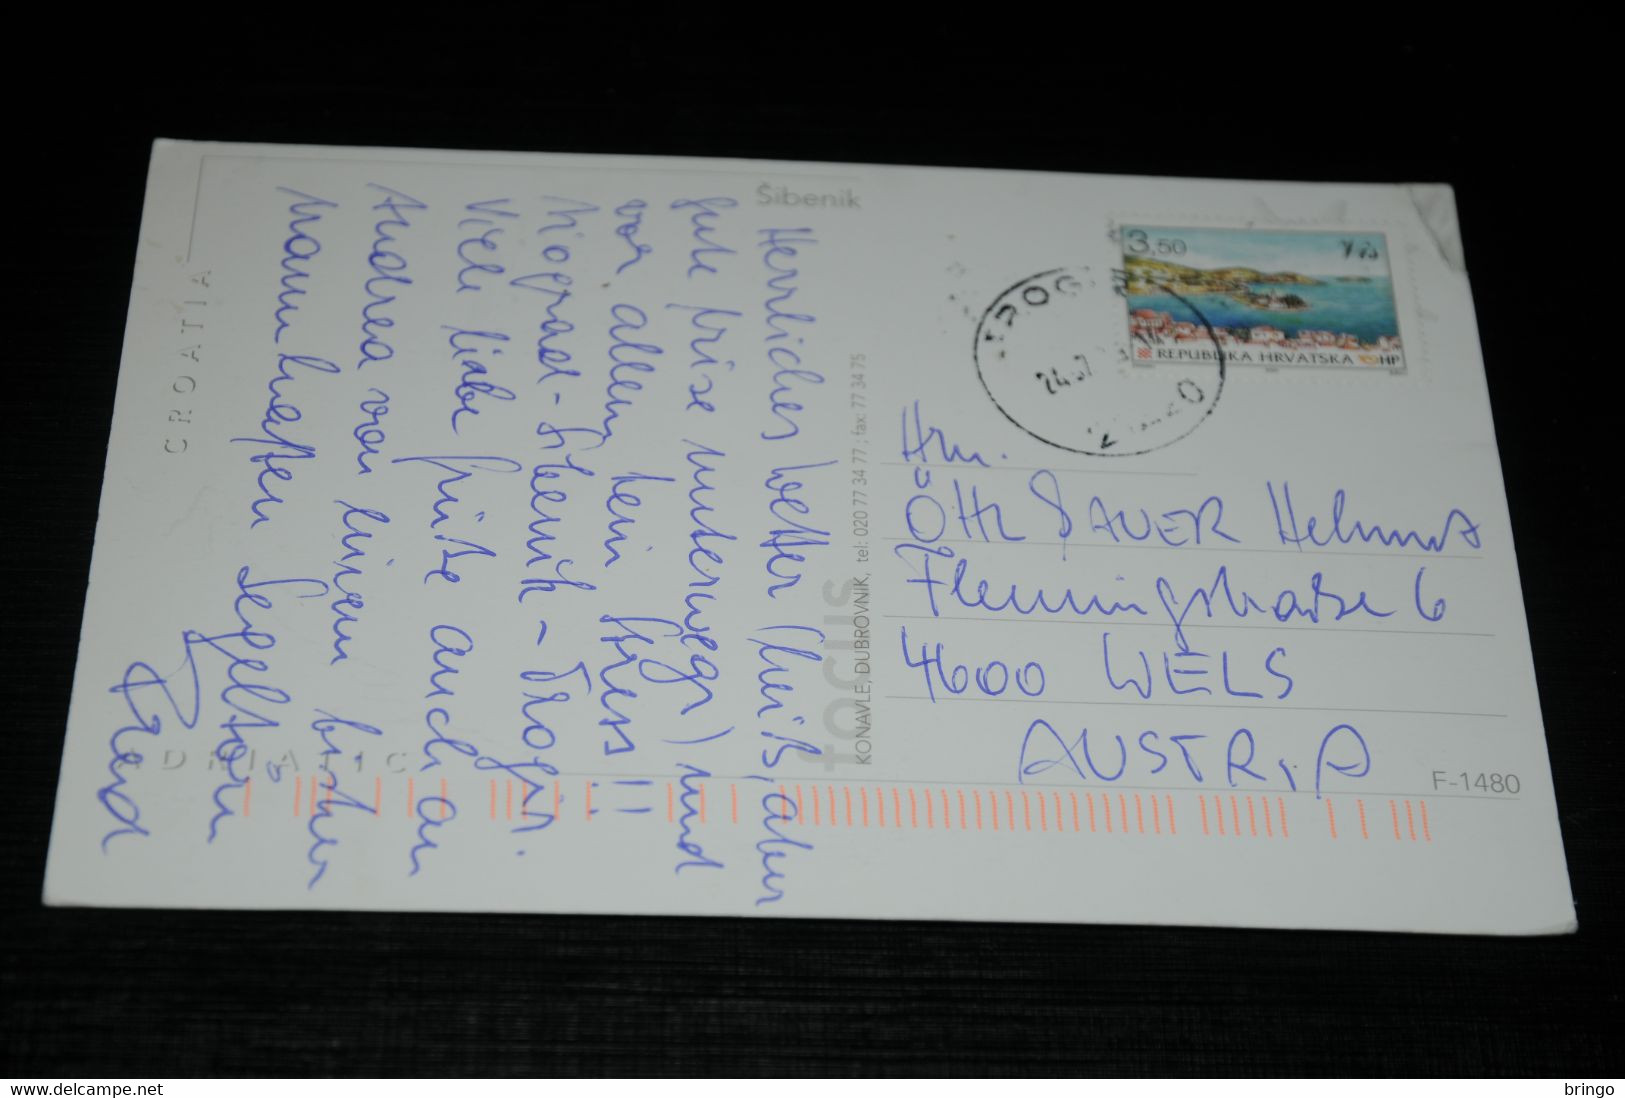 Šibenik
Herrliches Wetter (heiß, aber
gute Brise unterwegs) und
vor allem kein Stress!!
Biograd - Šibenik - Trogir.
Viele liebe Grüße auch an
Andrea von einem bisher
traumhaften Segeltörn
CROATIA
ADRIATIC
focus
KONAVLE, DUBROVNIK, tel: 020 77 34 77; fax: 77 34 75
3,50
Vis
REPUBLIKA HRVATSKA HP
TROGIR
24.07
Hrn.
ÖHL SAUER Helmut
Flemingstraße 6
4600 WELS
AUSTRIA
F-1480
delcampe.net
bringo